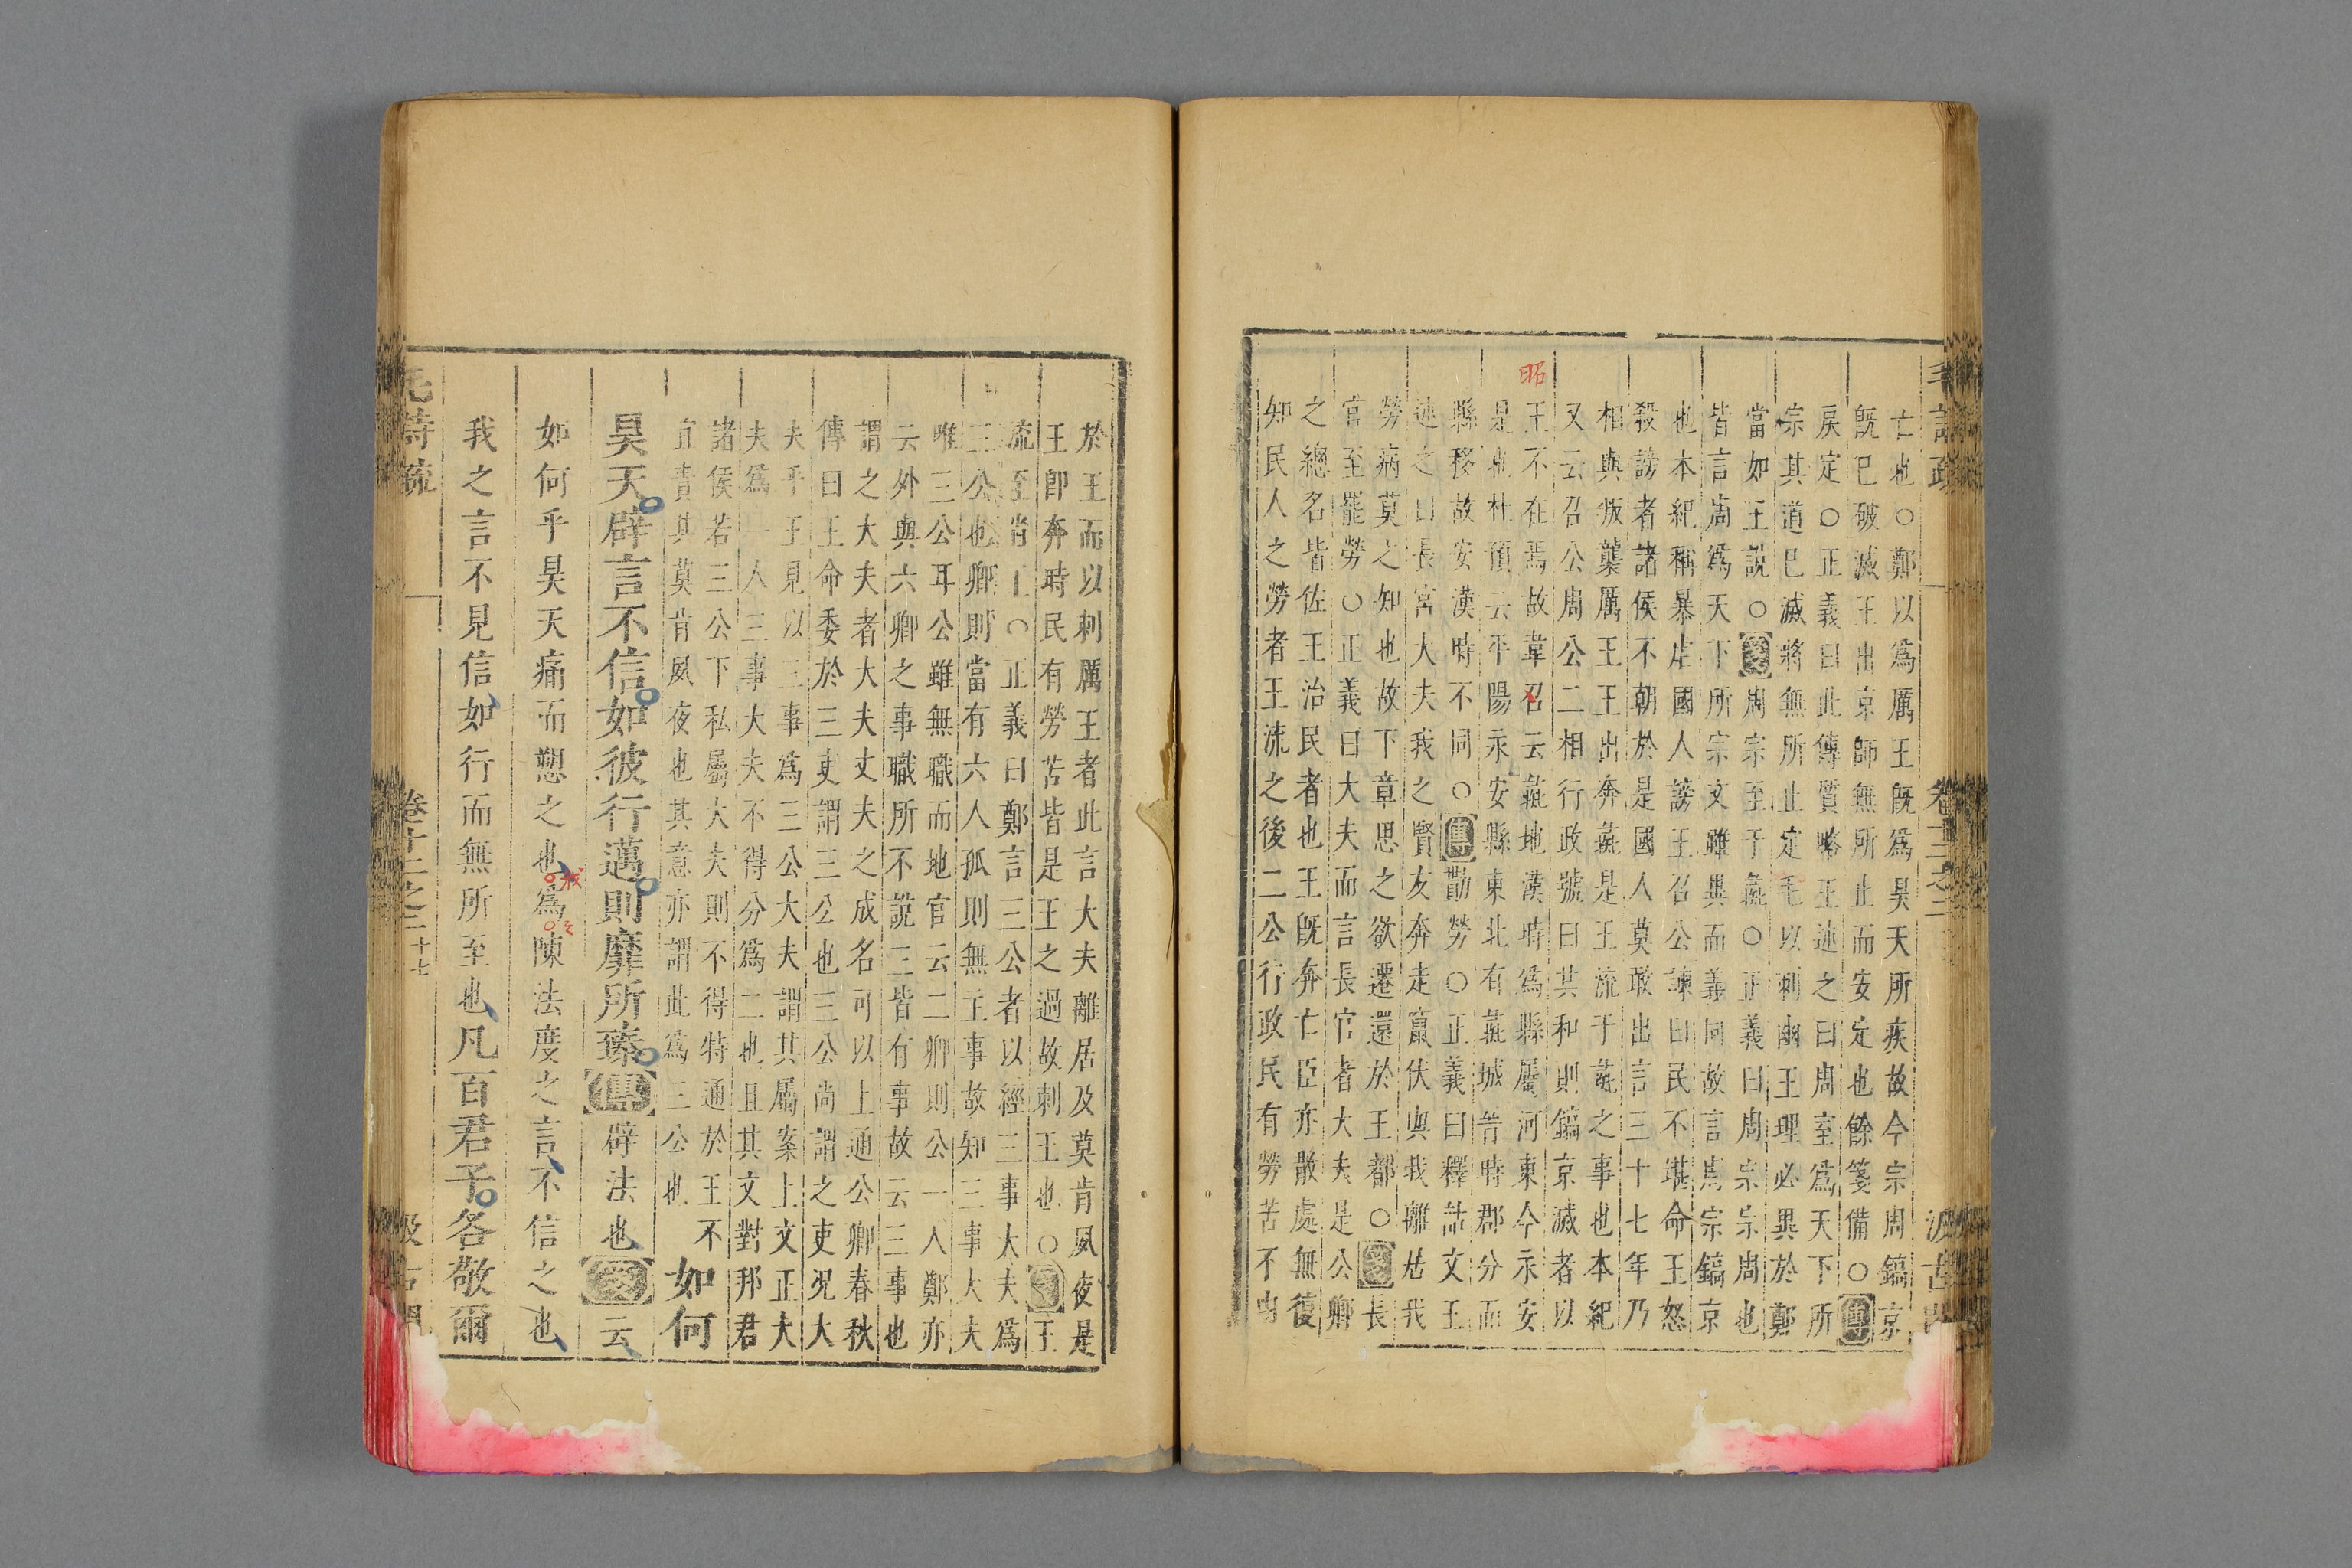 亡也○鄭以爲厲王旣爲昊天所疾故今宗周鎬京
旣已破滅王出京師無所止而安定也餘箋備○傳
戾定○正義曰此傳質略王述之曰周室爲天下所
宗其道已滅將無所止定毛以刺幽王理必異於鄭
當如王說○箋周宗至于彘○正義曰周宗宗周也
皆言周爲天下所宗文雖異而義同故言焉宗鎬京
也本紀稱暴虐國人謗王召公諫曰民不堪命王怒
殺謗者諸侯不朝於是國人莫敢出言三十七年乃
相與叛襲厲王王出奔彘是王流于彘之事也本紀
又云召公周公二相行政號曰共和則鎬京滅者以
王不在焉故韋召云彘地漢時爲縣屬河東今永安
昭
是也杜預云平陽永安縣東北有彘城晉時郡分而
縣移故安漢時不同○傳勩勞○正義曰釋詁文王
述之曰長官大夫我之賢友奔走竄伏與我離居我
勞病莫之知也故下章思之欲遷還於王都○箋長
官至罷勞○正義曰大夫而言長官者大夫是公卿
之總名皆佐王治民者也王旣奔亡臣亦散處無復
知民人之勞者王流之後二公行政民有勞苦不由
於王而以刺厲王者此言大夫離居及莫肯夙夜是
王卽奔時民有勞苦皆是王之過故刺王也○箋王
流至省王○正義曰鄭言三公者以經三事大夫爲
三公也卿則當有六人孤則無主事故知三事大夫
唯三公耳公雖無職而地官云二卿則公一人鄭亦
云外與六卿之事職所不說三皆有事故云三事也
謂之大夫者大夫丈夫之成名可以上通公卿春秋
傳曰王命委於三吏謂三公也三公尚謂之吏况大
夫乎王見以三事爲三公大夫謂其屬案上文正大
夫爲一人三事大夫不得分爲二也且其文對邦君
諸侯若三公下私屬大夫則不得特通於王不
宜責其莫肯夙夜也其意亦謂此爲三公也
如何
昊天辟言不信如彼行邁則靡所臻傳辟法也箋云
如何乎昊天痛而愬之也爲陳法度之言不信之也
我之言不見信如行而無所至也凡百君子各敬爾
毛詩疏 卷十二之二 十七 汲古閣